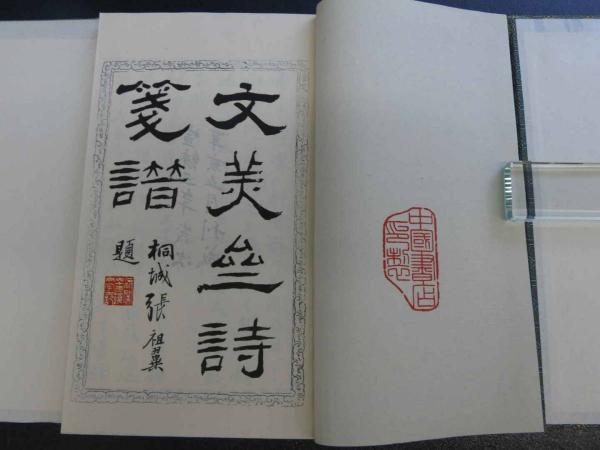 中國書店
印製
文美亝詩
箋譜
桐城張祖翼
題